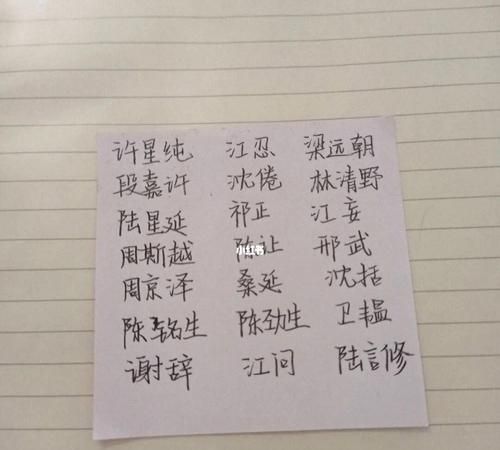 许星纯 江忍 梁远朝
段嘉许 沈倦 林清野
陆星延 祁正 江妄
周斯越 陈让 邢武
周京泽 桑延 沈括
陈铭生 陈劲生 卫韫
谢辞 江问 陆言修
小红书